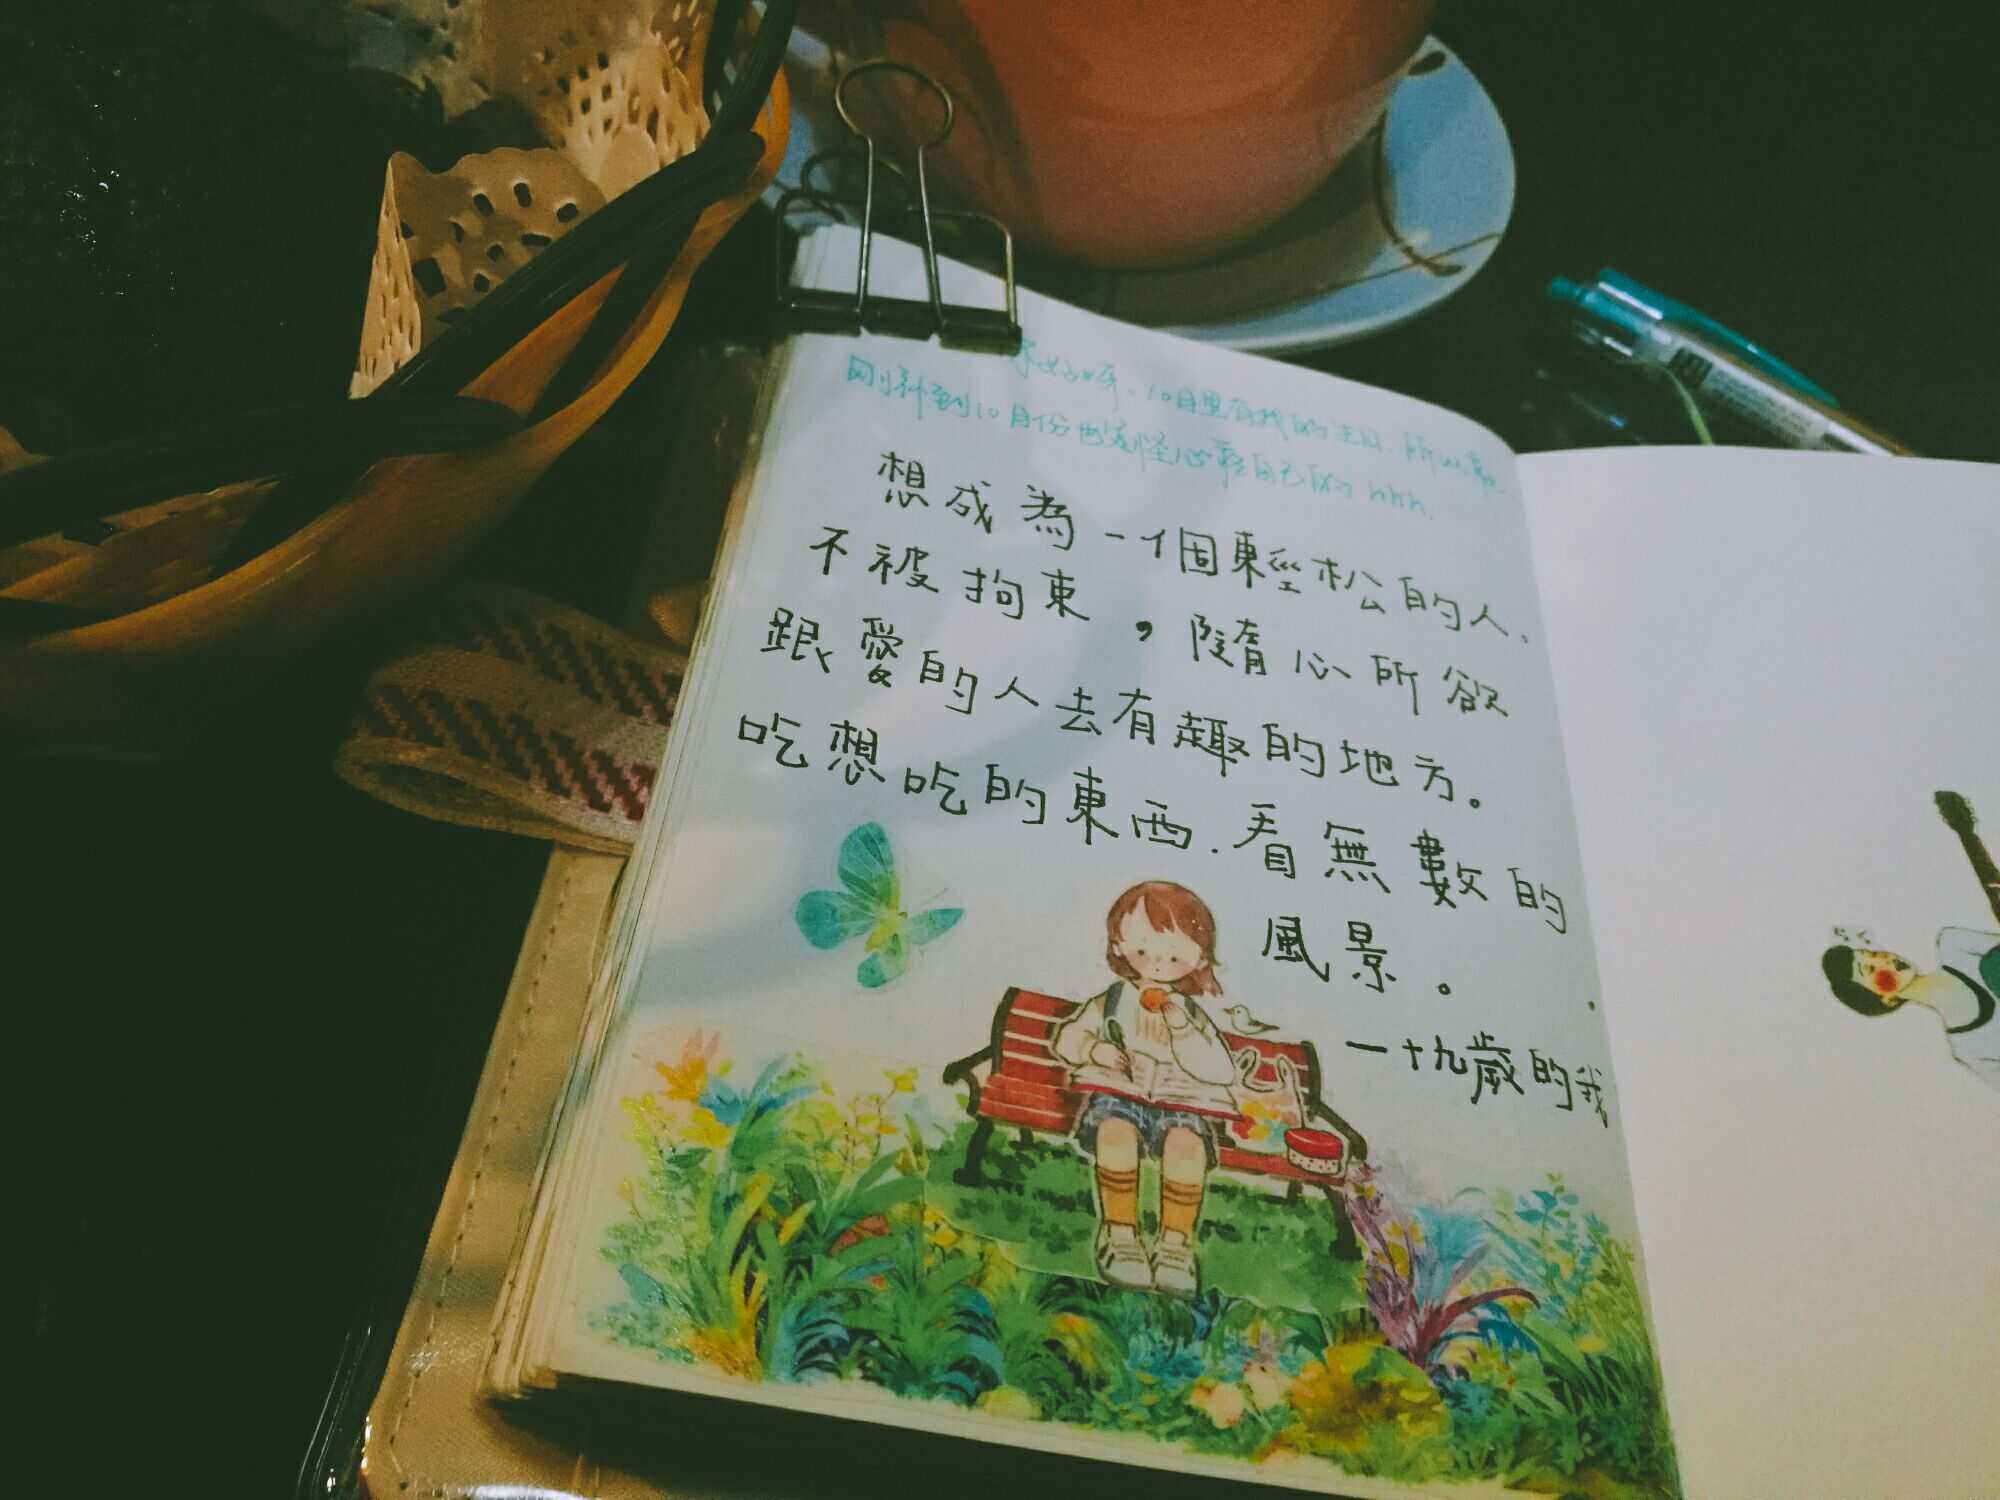 好呀、10月里有我的生日.所以寫
刚好到10月份也
想成為一个個輕松的人、
不被拘束，隨心所欲
跟愛的人去有趣的地方。
吃想吃的東西.看無數的
風景。
一十九歲的我